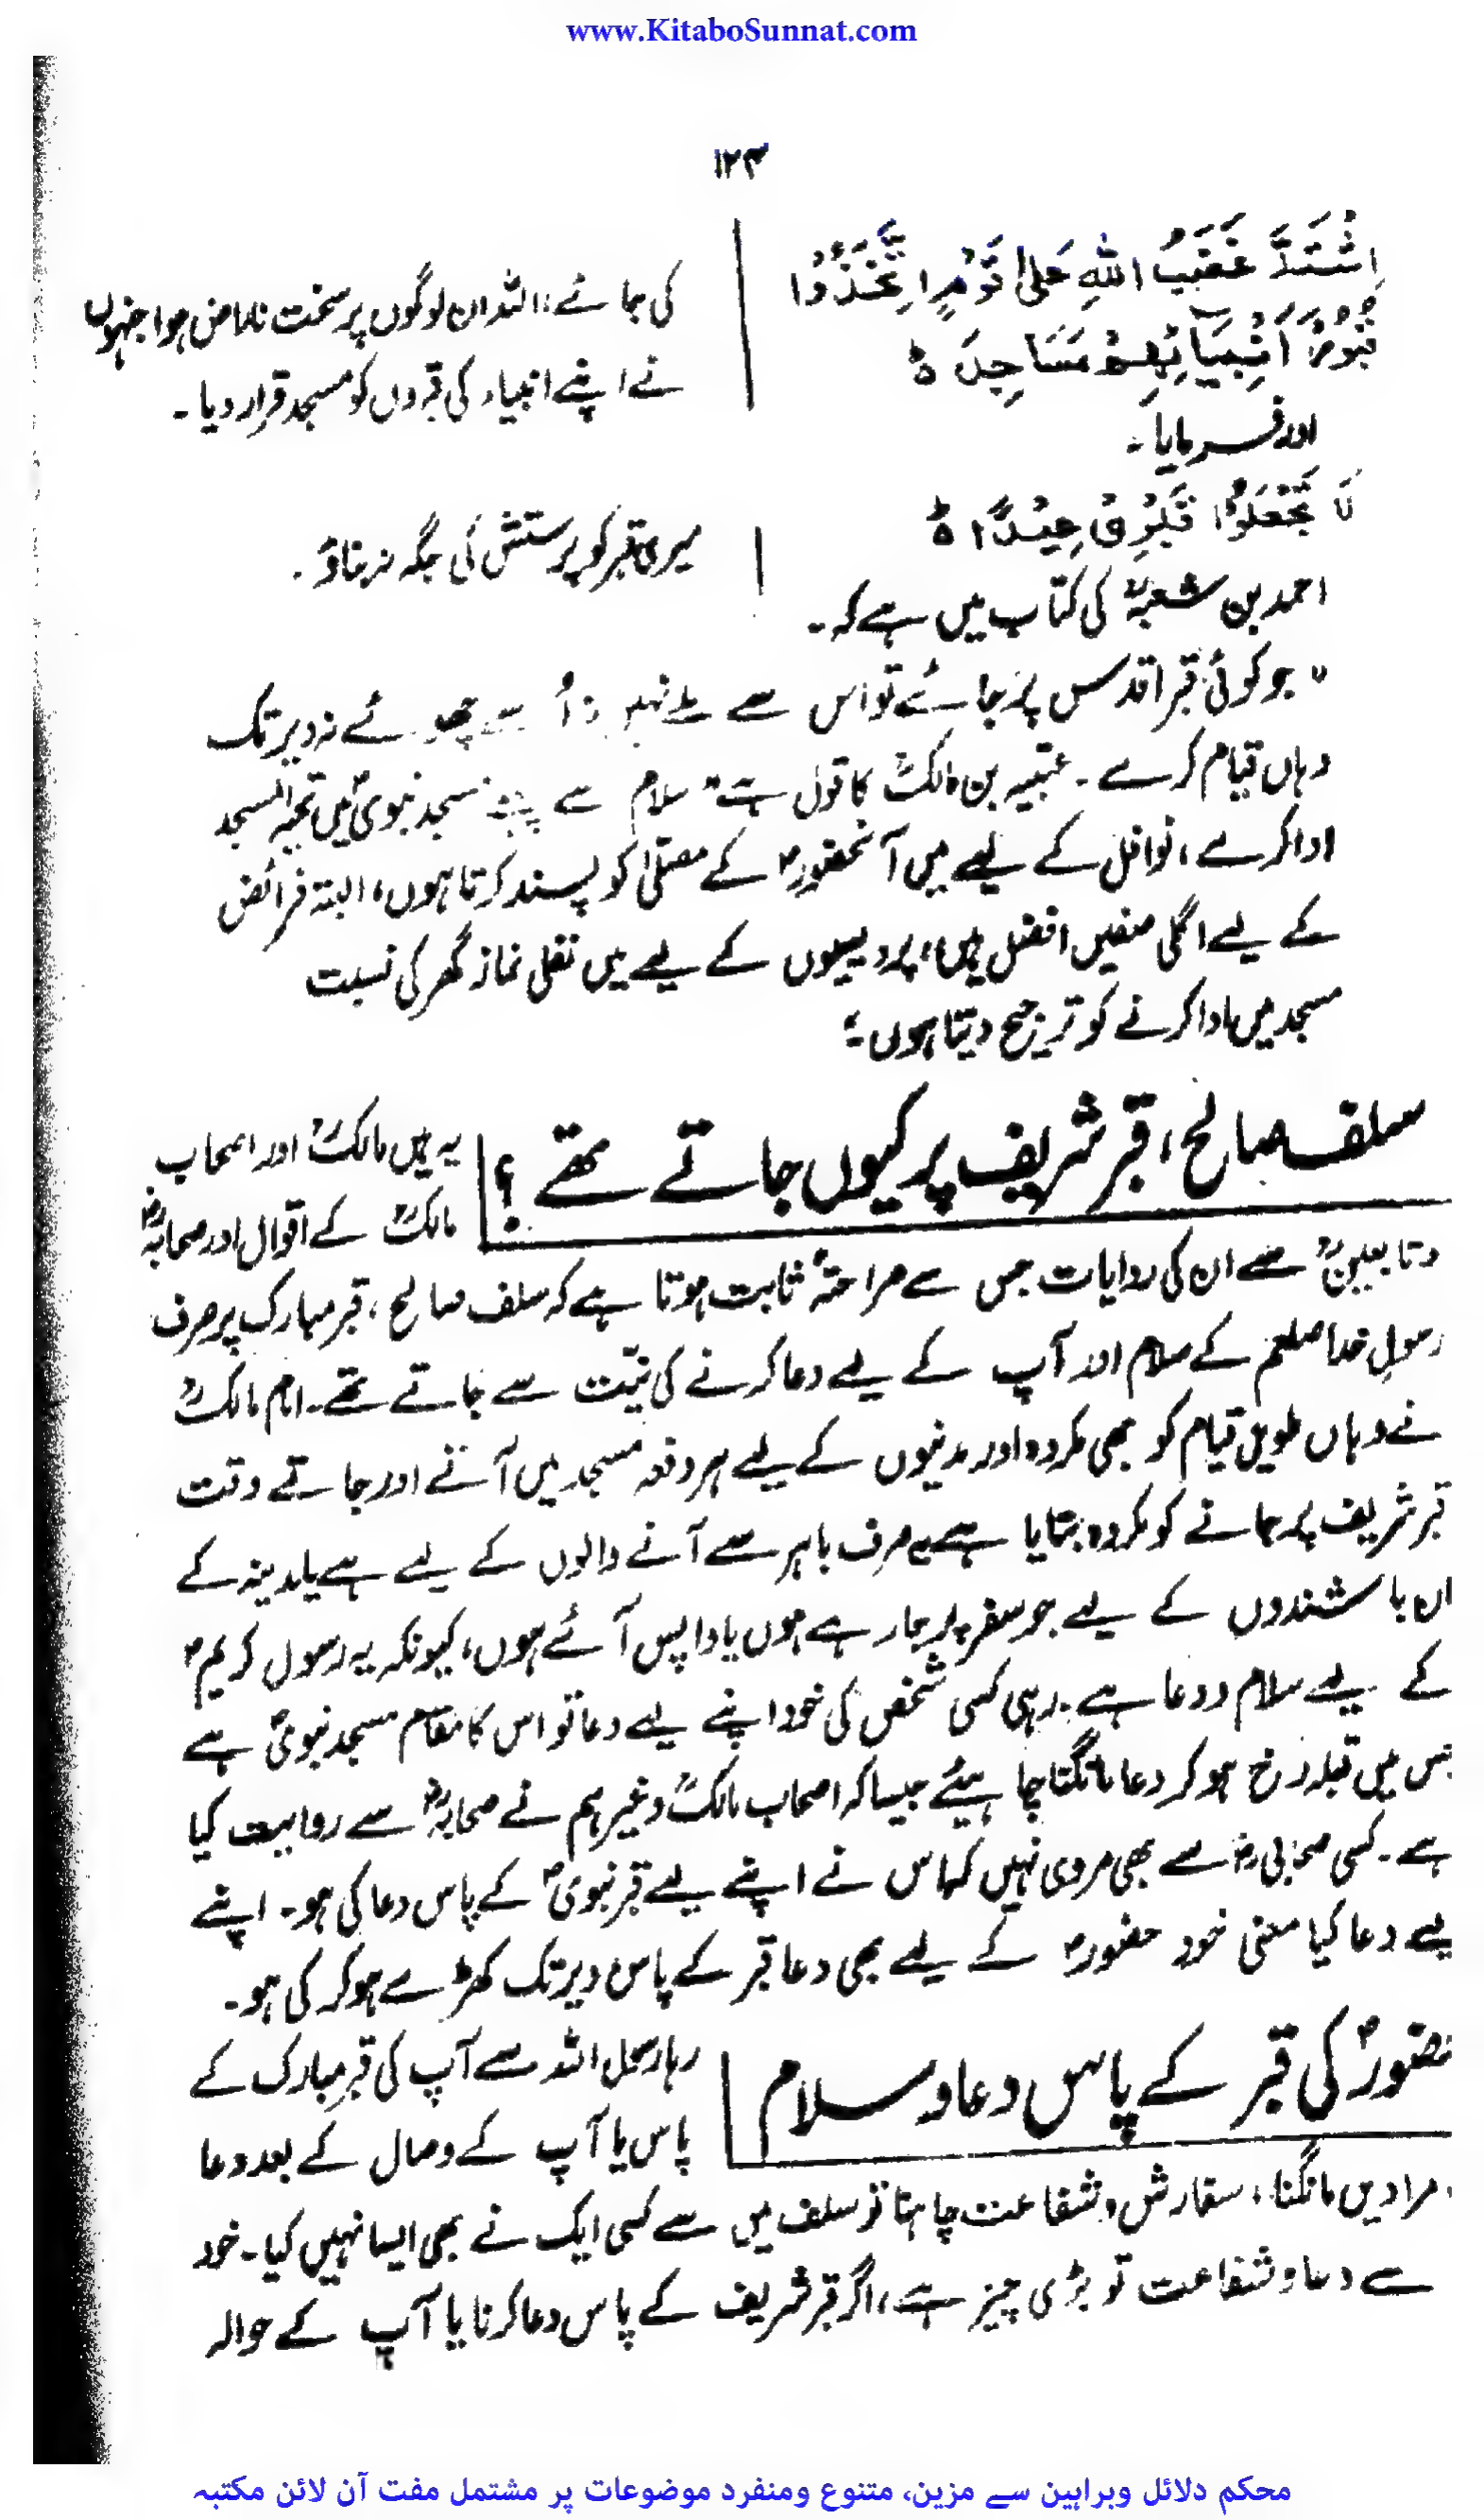 www.KitaboSunnat.com
۱۲۳
اِشْتَدَّ غَضَبُ اللّٰہِ عَلیٰ قَوْمٍ اتَّخَذُوْا
قُبُوْرَ اَنْبِیَائِھِمْ مَسَاجِدَ ہ
کی جائے، اللہ ان لوگوں پر سخت ناراض ہوا جنہوں
نے اپنے انبیاء کی قبروں کو مسجد قرار دیا۔
اور فرمایا۔
لَا تَجْعَلُوْا قَبْرِیْ عِیْدًا ہ
میری قبر کو پرستش کی جگہ نہ بناؤ۔
احمد بن شعبہؒ کی کتاب میں ہے کہ۔
" جو کوئی قبر اقدس پر جائے تو اس سے نہ دیر تک
وہاں قیام کرے۔ بن مالکؒ کا قول ہے" سلام سے پہلے مسجد نبویؐ میں تحیۃ المسجد
ادا کرے، نوافل کے لیے میں آنحضورؐ کے مصلیٰ کو پسند کرتا ہوں، البتہ فرائض
کے لیے اگلی صفیں افضل ہیں، پردیسیوں کے لیے میں نفلی نماز گھر کی نسبت
مسجد میں ادا کرنے کو ترجیح دیتا ہوں۔"
سلف صالح، قبر شریف پر کیوں جاتے تھے؟
یہ ہیں مالکؒ اور اصحاب
مالکؒ کے اقوال اور صحابہؓ
وتابعینؒ سے ان کی روایات جس سے صراحۃً ثابت ہوتا ہے کہ سلف صالح، قبر مبارک پر صرف
رسولِ خدا صلعم کے سلام اور آپ کے لیے دعا کرنے کی نیّت سے جاتے تھے۔ امام مالکؒ
نے وہاں طویل قیام کو بھی مکروہ اور مدنیوں کے لیے ہر دفعہ مسجد میں آنے اور جاتے وقت
قبر شریف پر جانے کو مکروہ بتایا ہے یہ صرف باہر سے آنے والوں کے لیے ہے یا مدینہ کے
ان باشندوں کے لیے جو سفر پر جا رہے ہوں یا واپس آئے ہوں، کیونکہ یہ رسول کریمؐ
کے لیے سلام ودعا ہے۔ رہی کسی شخص کی خود اپنے لیے دعا تو اس کا مقام مسجد نبویؐ ہے
جس میں قبلہ رخ ہو کر دعا مانگنا چاہیئے جیسا کہ اصحاب مالکؒ وغیرہم نے صحابہؓ سے روایت کیا
ہے۔ کسی صحابیؓ سے بھی مروی نہیں کہ اس نے اپنے لیے قبر نبویؐ کے پاس دعا کی ہو۔ اپنے
لیے دعا کیا معنی خود حضورؐ کے لیے بھی دعا قبر کے پاس دیر تک کھڑے ہو کر کی ہو۔
حضورؐ کی قبر کے پاس دعا وسلام
رہا رسول اللہ سے آپ کی قبر مبارک کے
پاس یا آپ کے وصال کے بعد دعا
، مرادیں مانگنا، سفارش وشفاعت چاہنا تو سلف میں سے کسی ایک نے بھی ایسا نہیں کیا۔ خود
سے دعا وشفاعت تو بڑی چیز ہے، اگر قبر شریف کے پاس دعا کرنا یا آپ کے حوالہ
محکم دلائل وبراہین سے مزین، متنوع ومنفرد موضوعات پر مشتمل مفت آن لائن مکتبہ